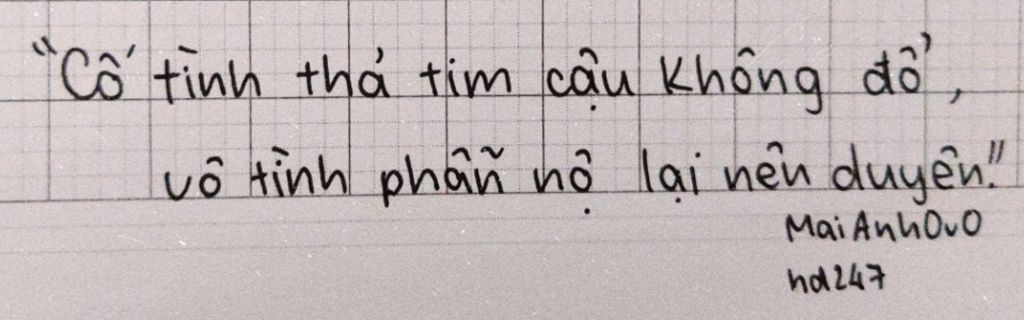 "Cố tình thả tim cậu không đổ,
vô tình phẫn nộ lại nên duyên!"
MaiAnhOvO
hd247